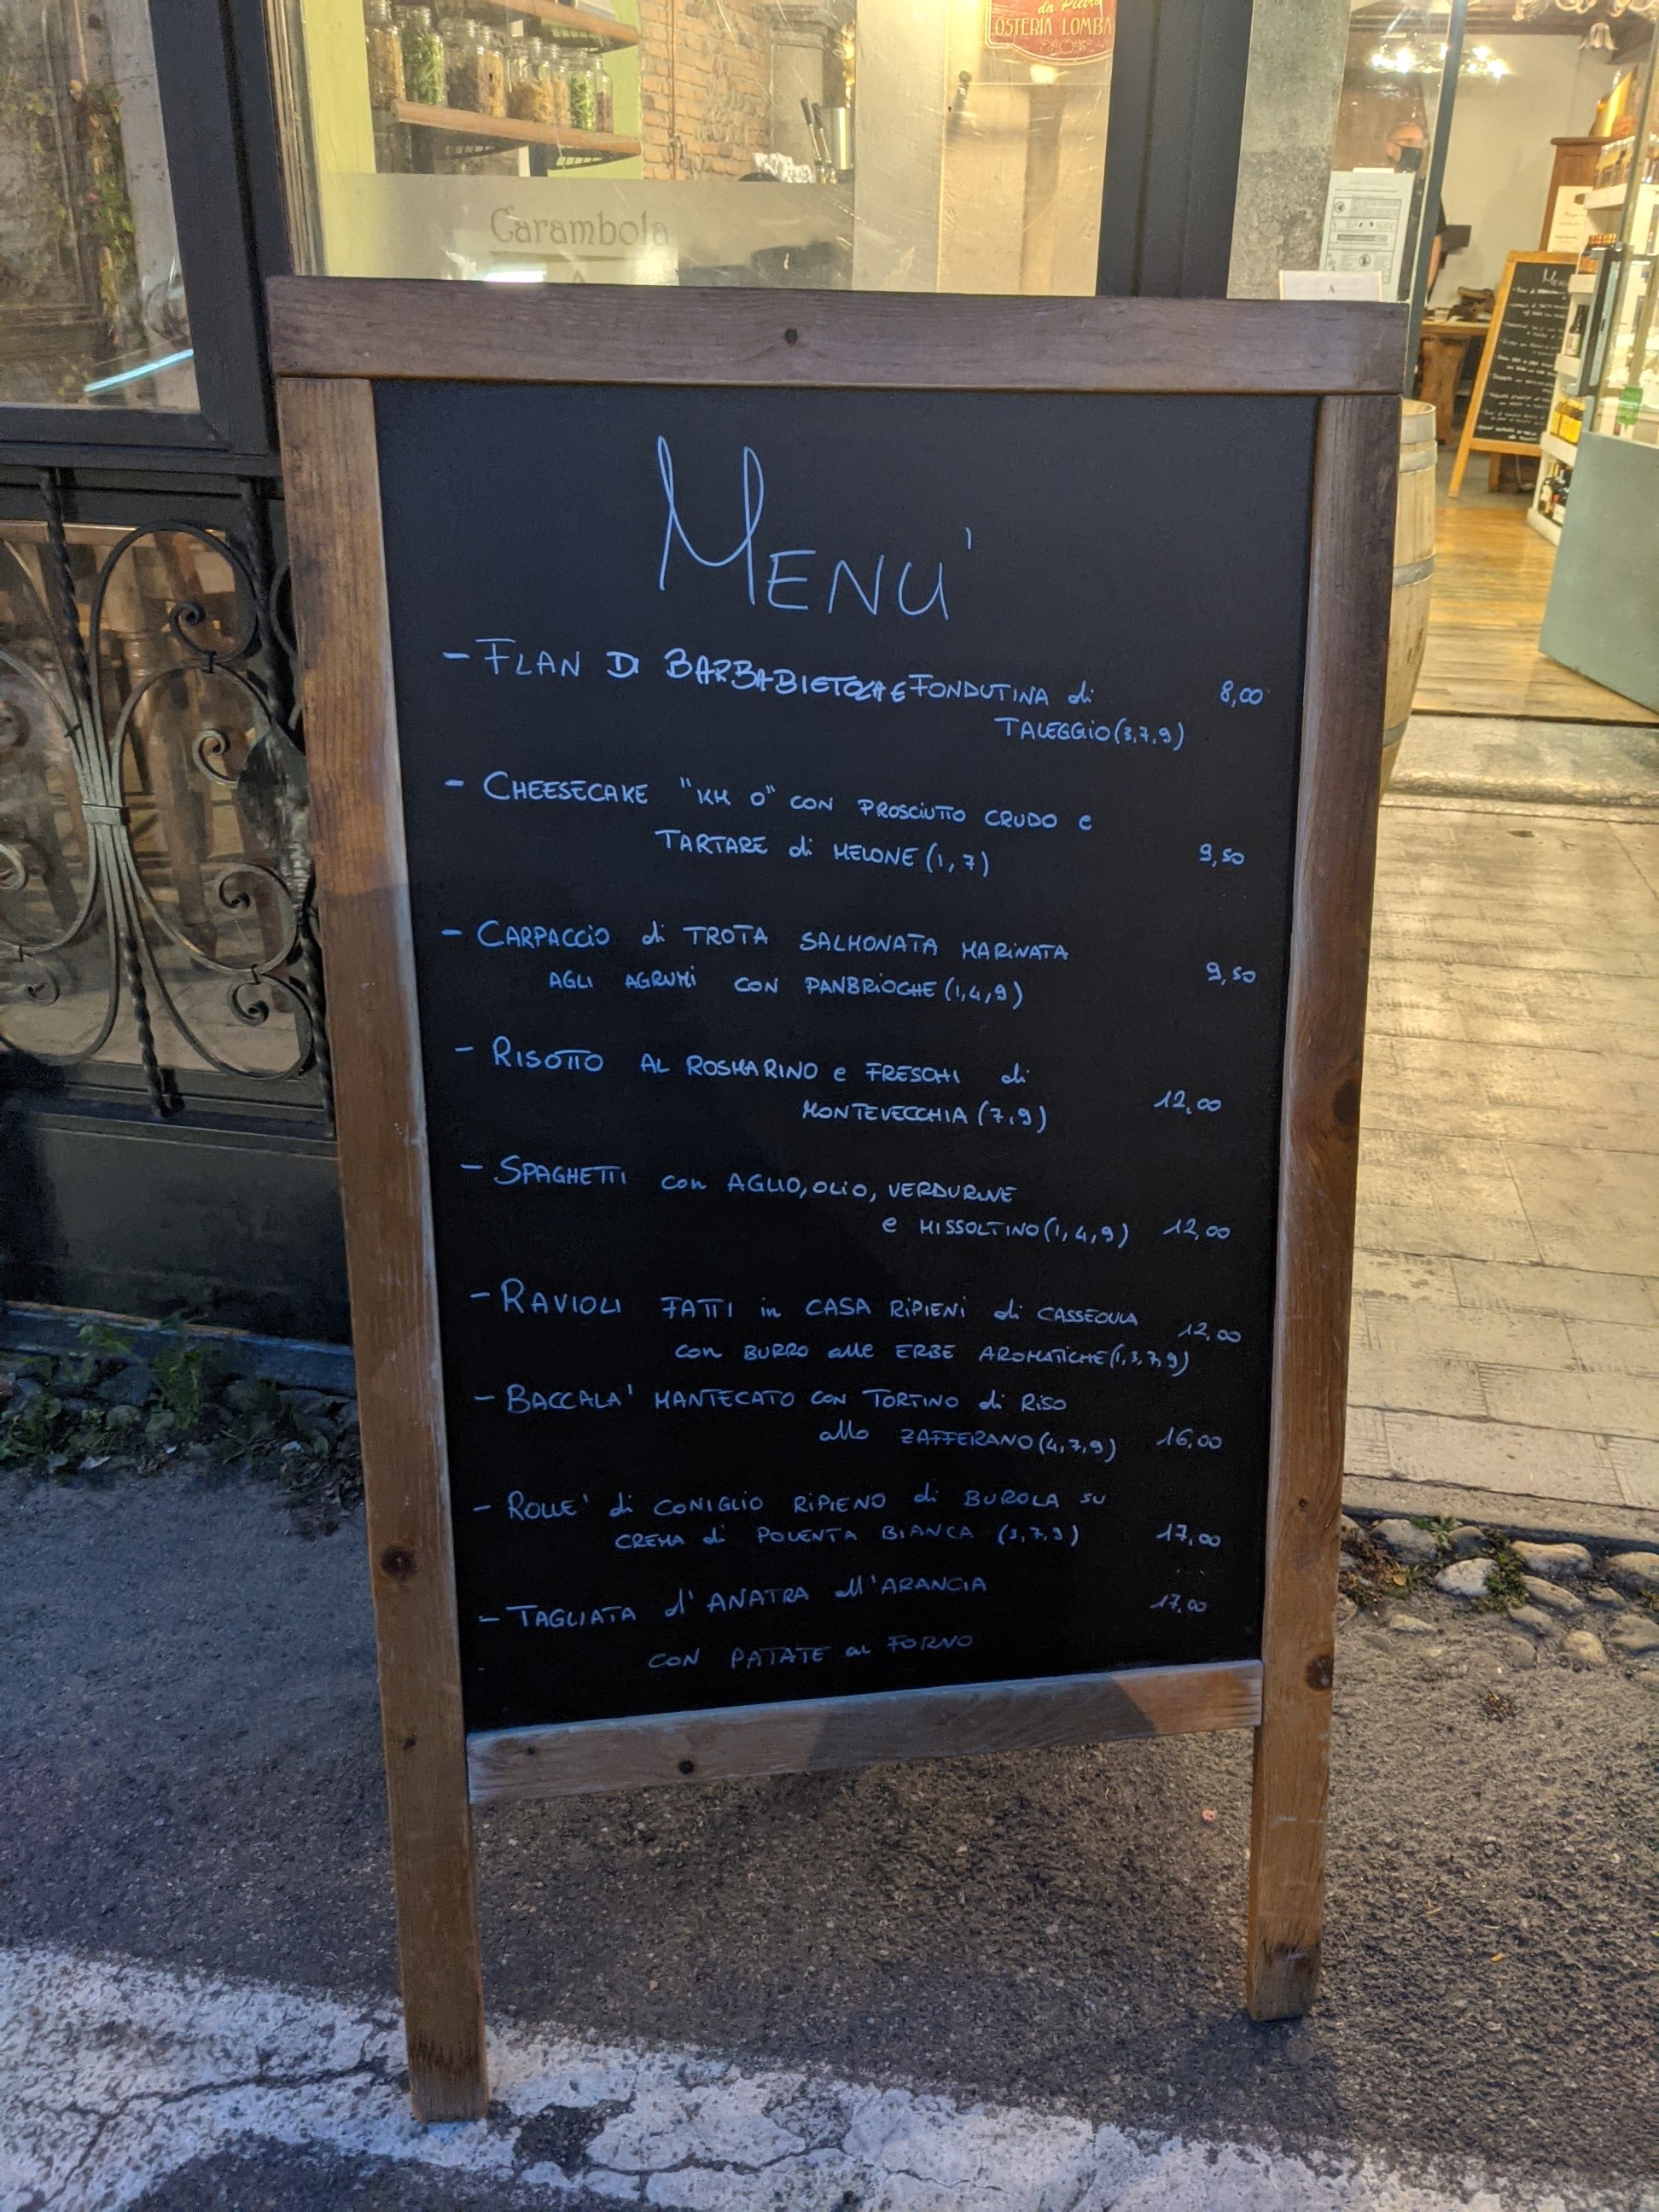 da Pietro
OSTERIA LOMBA
Carambola
MENU'
- FLAN DI BARBABIETOLA E FONDUTINA di 8,00
TALEGGIO (3,7,9)
- CHEESECAKE "KM 0" CON PROSCIUTTO CRUDO e
TARTARE di MELONE (1,7) 9,50
- CARPACCIO di TROTA SALMONATA MARINATA
AGLI AGRUMI CON PANBRIOCHE (1,4,9) 9,50
- RISOTTO AL ROSMARINO e FRESCHI di
MONTEVECCHIA (7,9) 12,00
- SPAGHETTI con AGLIO, OLIO, VERDURINE
e MISSOLTINO (1,4,9) 12,00
- RAVIOLI FATTI in CASA RIPIENI di CASSEOULA 12,00
con BURRO alle ERBE AROMATICHE (1,3,7,9)
- BACCALA' MANTECATO CON TORTINO di RISO
allo ZAFFERANO (4,7,9) 16,00
- ROLLE' di CONIGLIO RIPIENO di BUROLA SU
CREMA di POLENTA BIANCA (3,7,9) 17,00
- TAGLIATA d'ANATRA all'ARANCIA 17,00
CON PATATE al FORNO